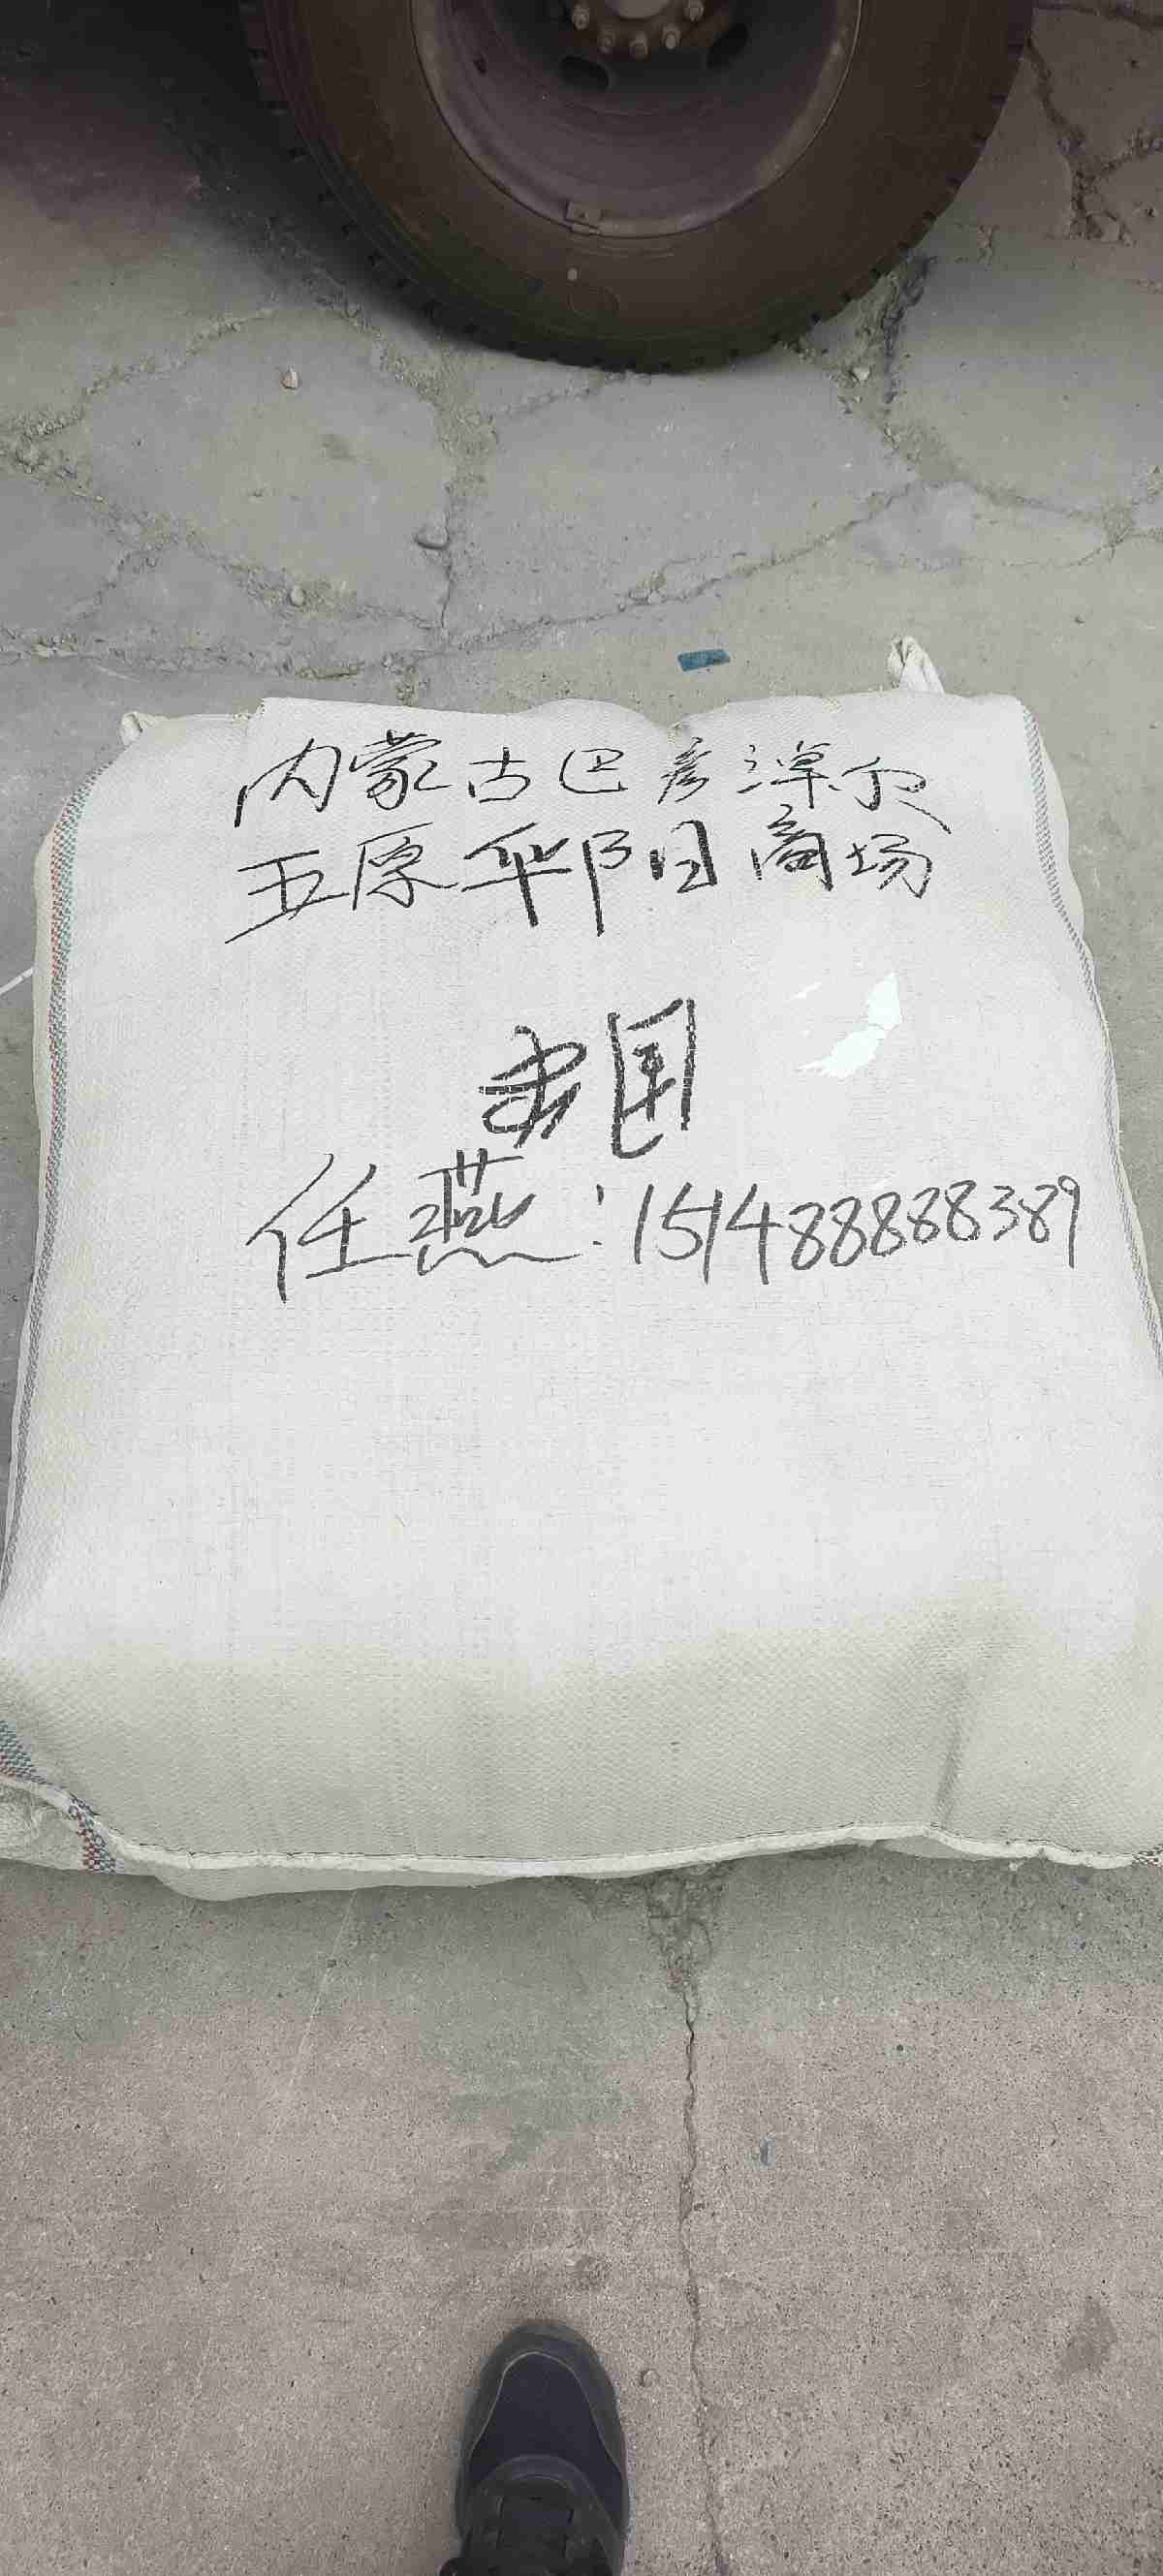 内蒙古巴彦淖尔
五原华阳商场
国
任燕:15148888389